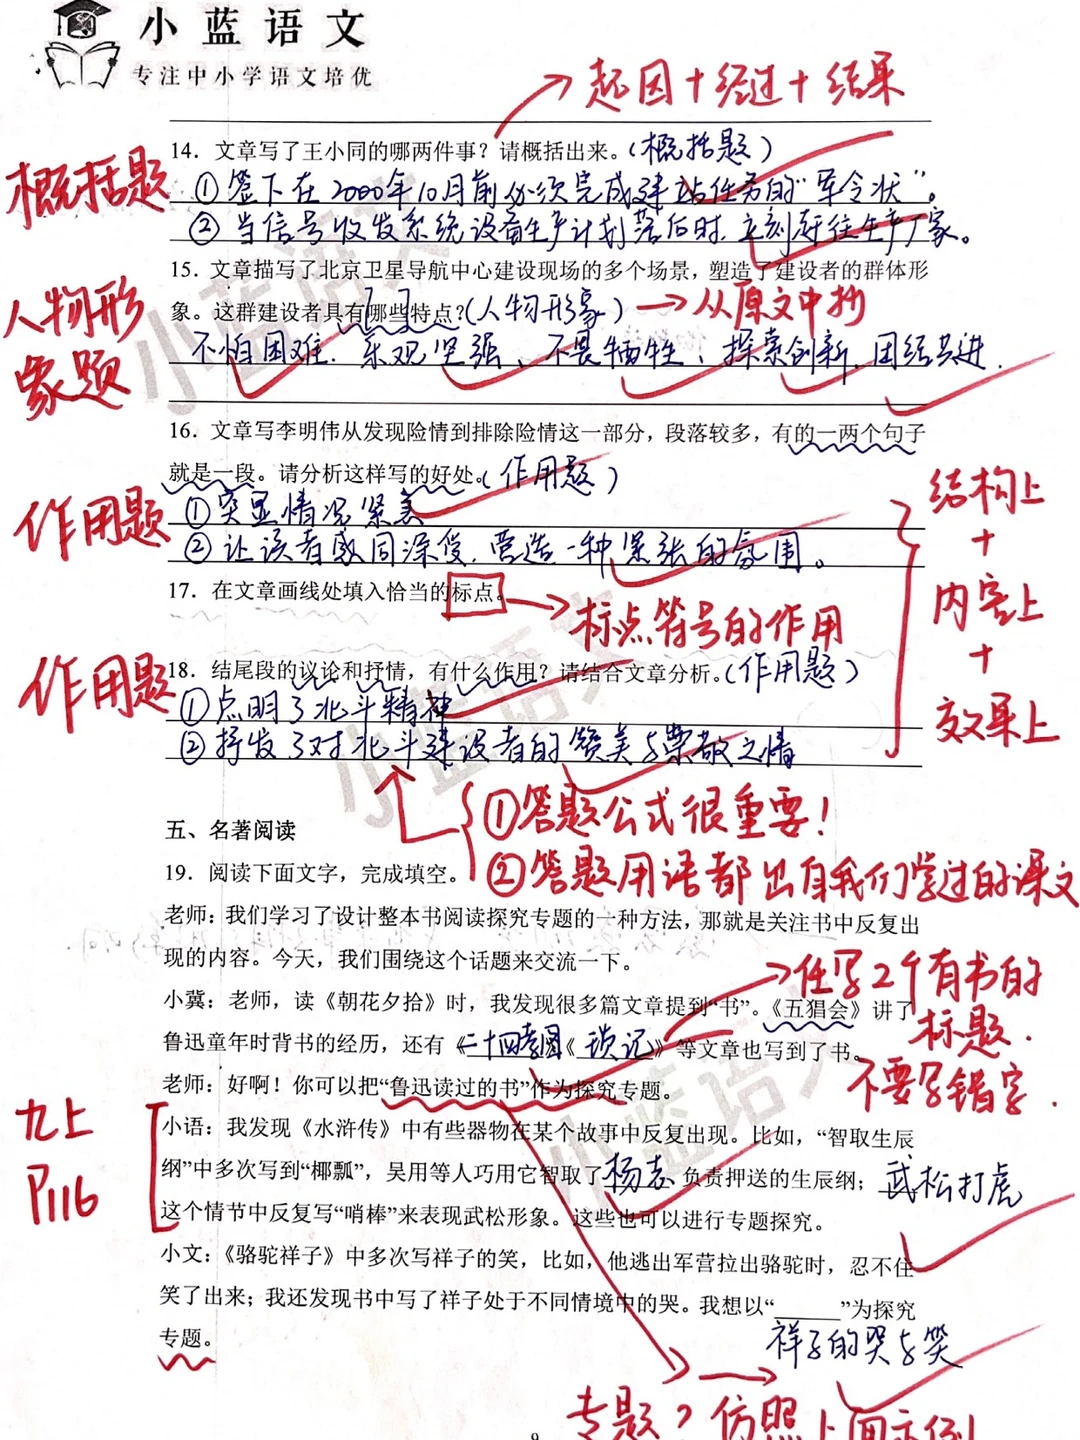 小蓝语文
专注中小学语文培优
起因+经过+结果
14. 文章写了王小同的哪两件事？请概括出来。（概括题）
概括题
①签下在2000年10月前必须完成建站任务的“军令状”。
②当信号收发系统设备生产计划落后时，立刻赶往生产厂家。
15. 文章描写了北京卫星导航中心建设现场的多个场景，塑造了建设者的群体形
象。这群建设者具有哪些特点？（人物形象）→从原文中抄
人物形
象题
不怕困难、乐观坚强、不畏牺牲、探索创新、团结共进.
16. 文章写李明伟从发现险情到排除险情这一部分，段落较多，有的一两个句子
就是一段。请分析这样写的好处。（作用题）
作用题
①突显情况紧急
②让读者感同深受，营造一种紧张的氛围。
结构上
+
内容上
+
效果上
17. 在文章画线处填入恰当的标点。
标点符号的作用
18. 结尾段的议论和抒情，有什么作用？请结合文章分析。（作用题）
作用题
①点明了北斗精神
②抒发了对北斗建设者的赞美与崇敬之情
①答题公式很重要！
②答题用语都出自我们学过的课文
五、名著阅读
19. 阅读下面文字，完成填空。
老师：我们学习了设计整本书阅读探究专题的一种方法，那就是关注书中反复出
现的内容。今天，我们围绕这个话题来交流一下。
任写2个有书的
标题.
不要写错字.
小冀：老师，读《朝花夕拾》时，我发现很多篇文章提到“书”。《五猖会》讲了
鲁迅童年时背书的经历，还有《二十四孝图》《琐记》等文章也写到了书。
老师：好啊！你可以把“鲁迅读过的书”作为探究专题。
九上
P116
小语：我发现《水浒传》中有些器物在某个故事中反复出现。比如，“智取生辰
纲”中多次写到“椰瓢”，吴用等人巧用它智取了杨志负责押送的生辰纲；武松打虎
这个情节中反复写“哨棒”来表现武松形象。这些也可以进行专题探究。
小文：《骆驼祥子》中多次写祥子的笑，比如，他逃出军营拉出骆驼时，忍不住
笑了出来；我还发现书中写了祥子处于不同情境中的哭。我想以“______”为探究
祥子的哭与笑
专题。
专题？仿照上面示例
9